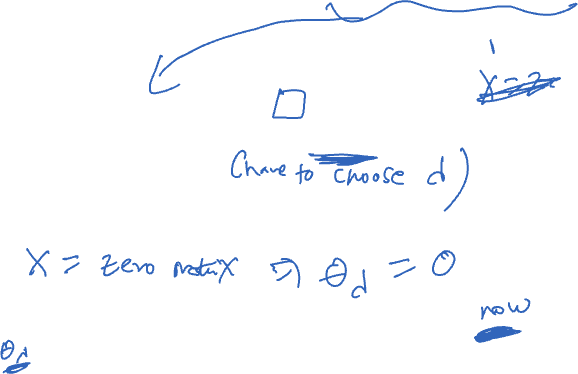 (have to choose d)
X = zero matrix ⇒ θ_d = 0
now
θ_d